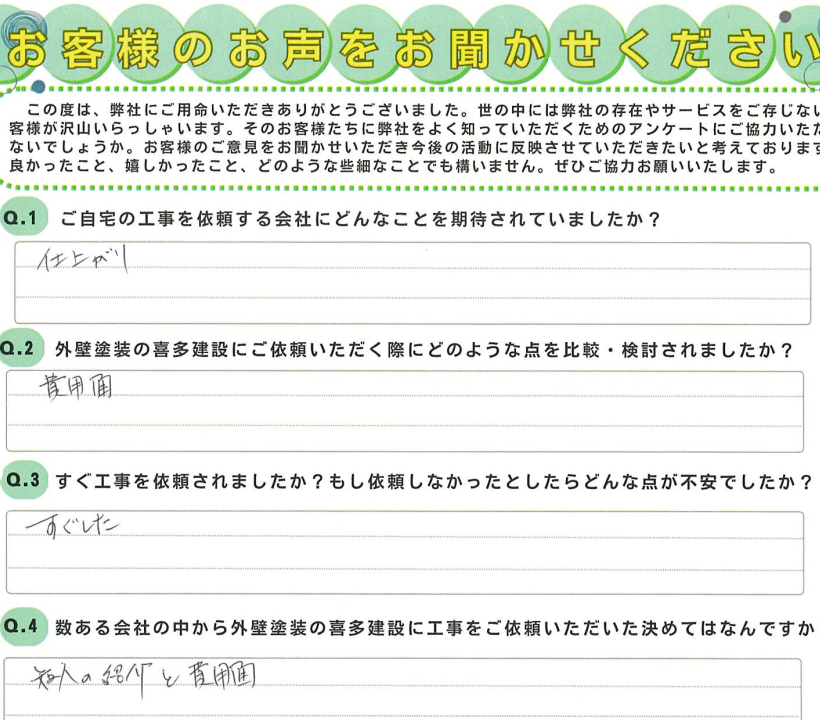 お客様のお声をお聞かせください
この度は、弊社にご用命いただきありがとうございました。世の中には弊社の存在やサービスをご存じない
客様が沢山いらっしゃいます。そのお客様たちに弊社をよく知っていただくためのアンケートにご協力いただ
ないでしょうか。お客様のご意見をお聞かせいただき今後の活動に反映させていただきたいと考えております
良かったこと、嬉しかったこと、どのような些細なことでも構いません。ぜひご協力お願いいたします。
Q.1 ご自宅の工事を依頼する会社にどんなことを期待されていましたか？
仕上がり
Q.2 外壁塗装の喜多建設にご依頼いただく際にどのような点を比較・検討されましたか？
費用面
Q.3 すぐ工事を依頼されましたか？もし依頼しなかったとしたらどんな点が不安でしたか？
すぐした
Q.4 数ある会社の中から外壁塗装の喜多建設に工事をご依頼いただいた決めてはなんですか
知人の紹介と費用面